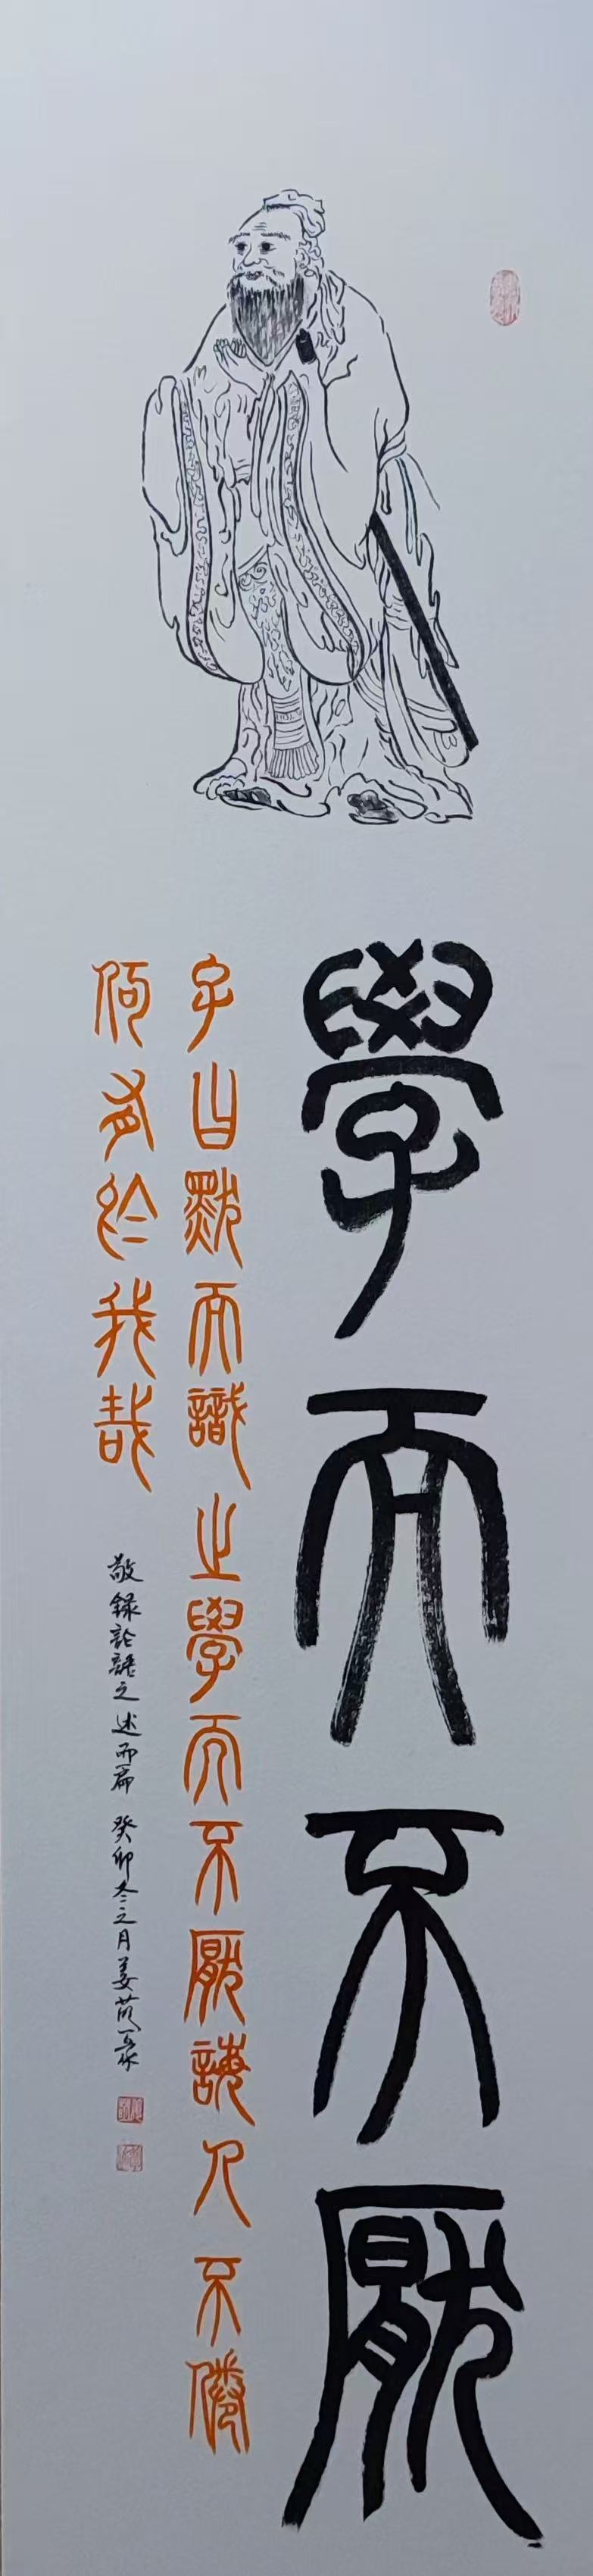 學而不厭
子曰默而識之學而不厭誨人不倦
何有於我哉
敬錄論語之述而篇 癸卯冬之月姜